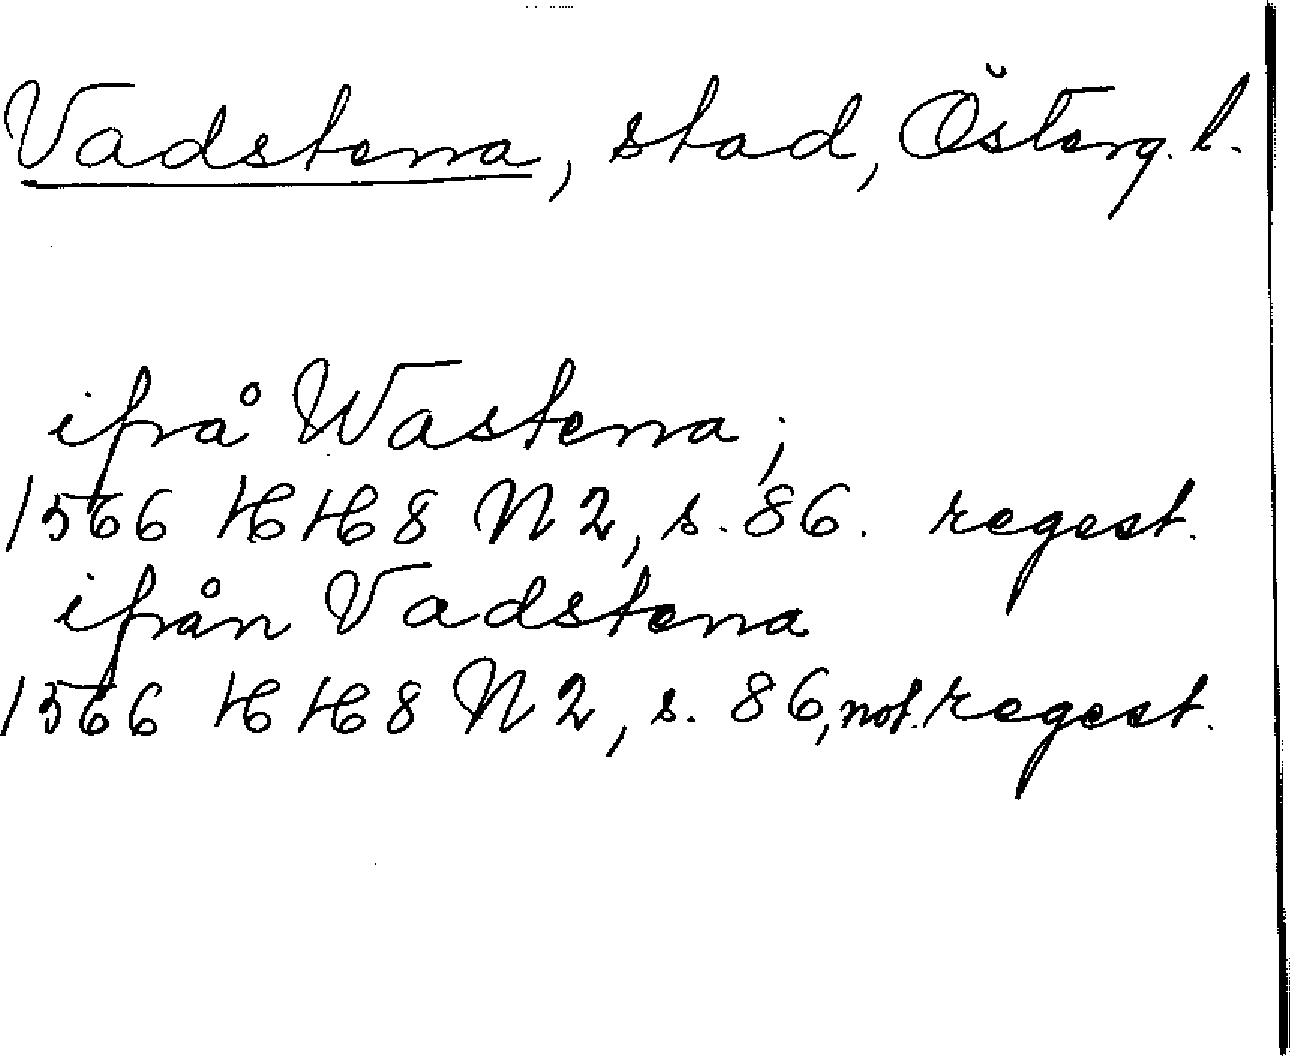 Vadstena, stad, Österg. l.
ifrå Wastena;
1566 HH 8 N 2, s. 86. regest.
ifrån Vadstena
1566 HH 8 N 2, s. 86, not. regest.